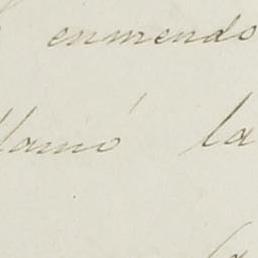 enmendo
llamó la